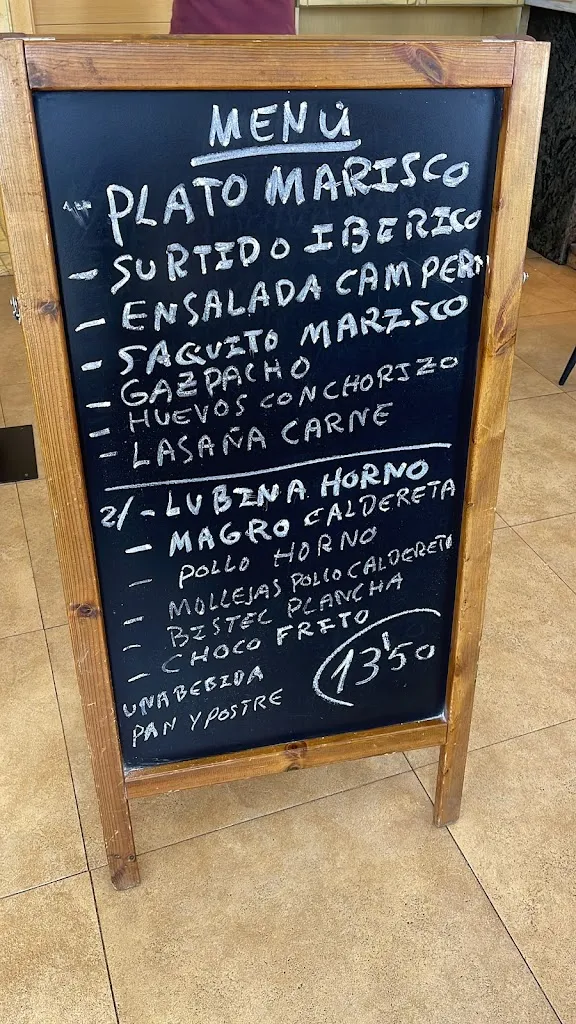 MENÚ
PLATO MARISCO
- SURTIDO IBERICO
- ENSALADA CAMPERA
- SAQUITO MARISCO
- GAZPACHO
- HUEVOS CON CHORIZO
- LASAÑA CARNE
2/- LUBINA HORNO
- MAGRO CALDERETA
- POLLO HORNO
- MOLLEJAS POLLO CALDERETA
- BISTEC PLANCHA
- CHOCO FRITO
13'50
UNA BEBIDA
PAN Y POSTRE